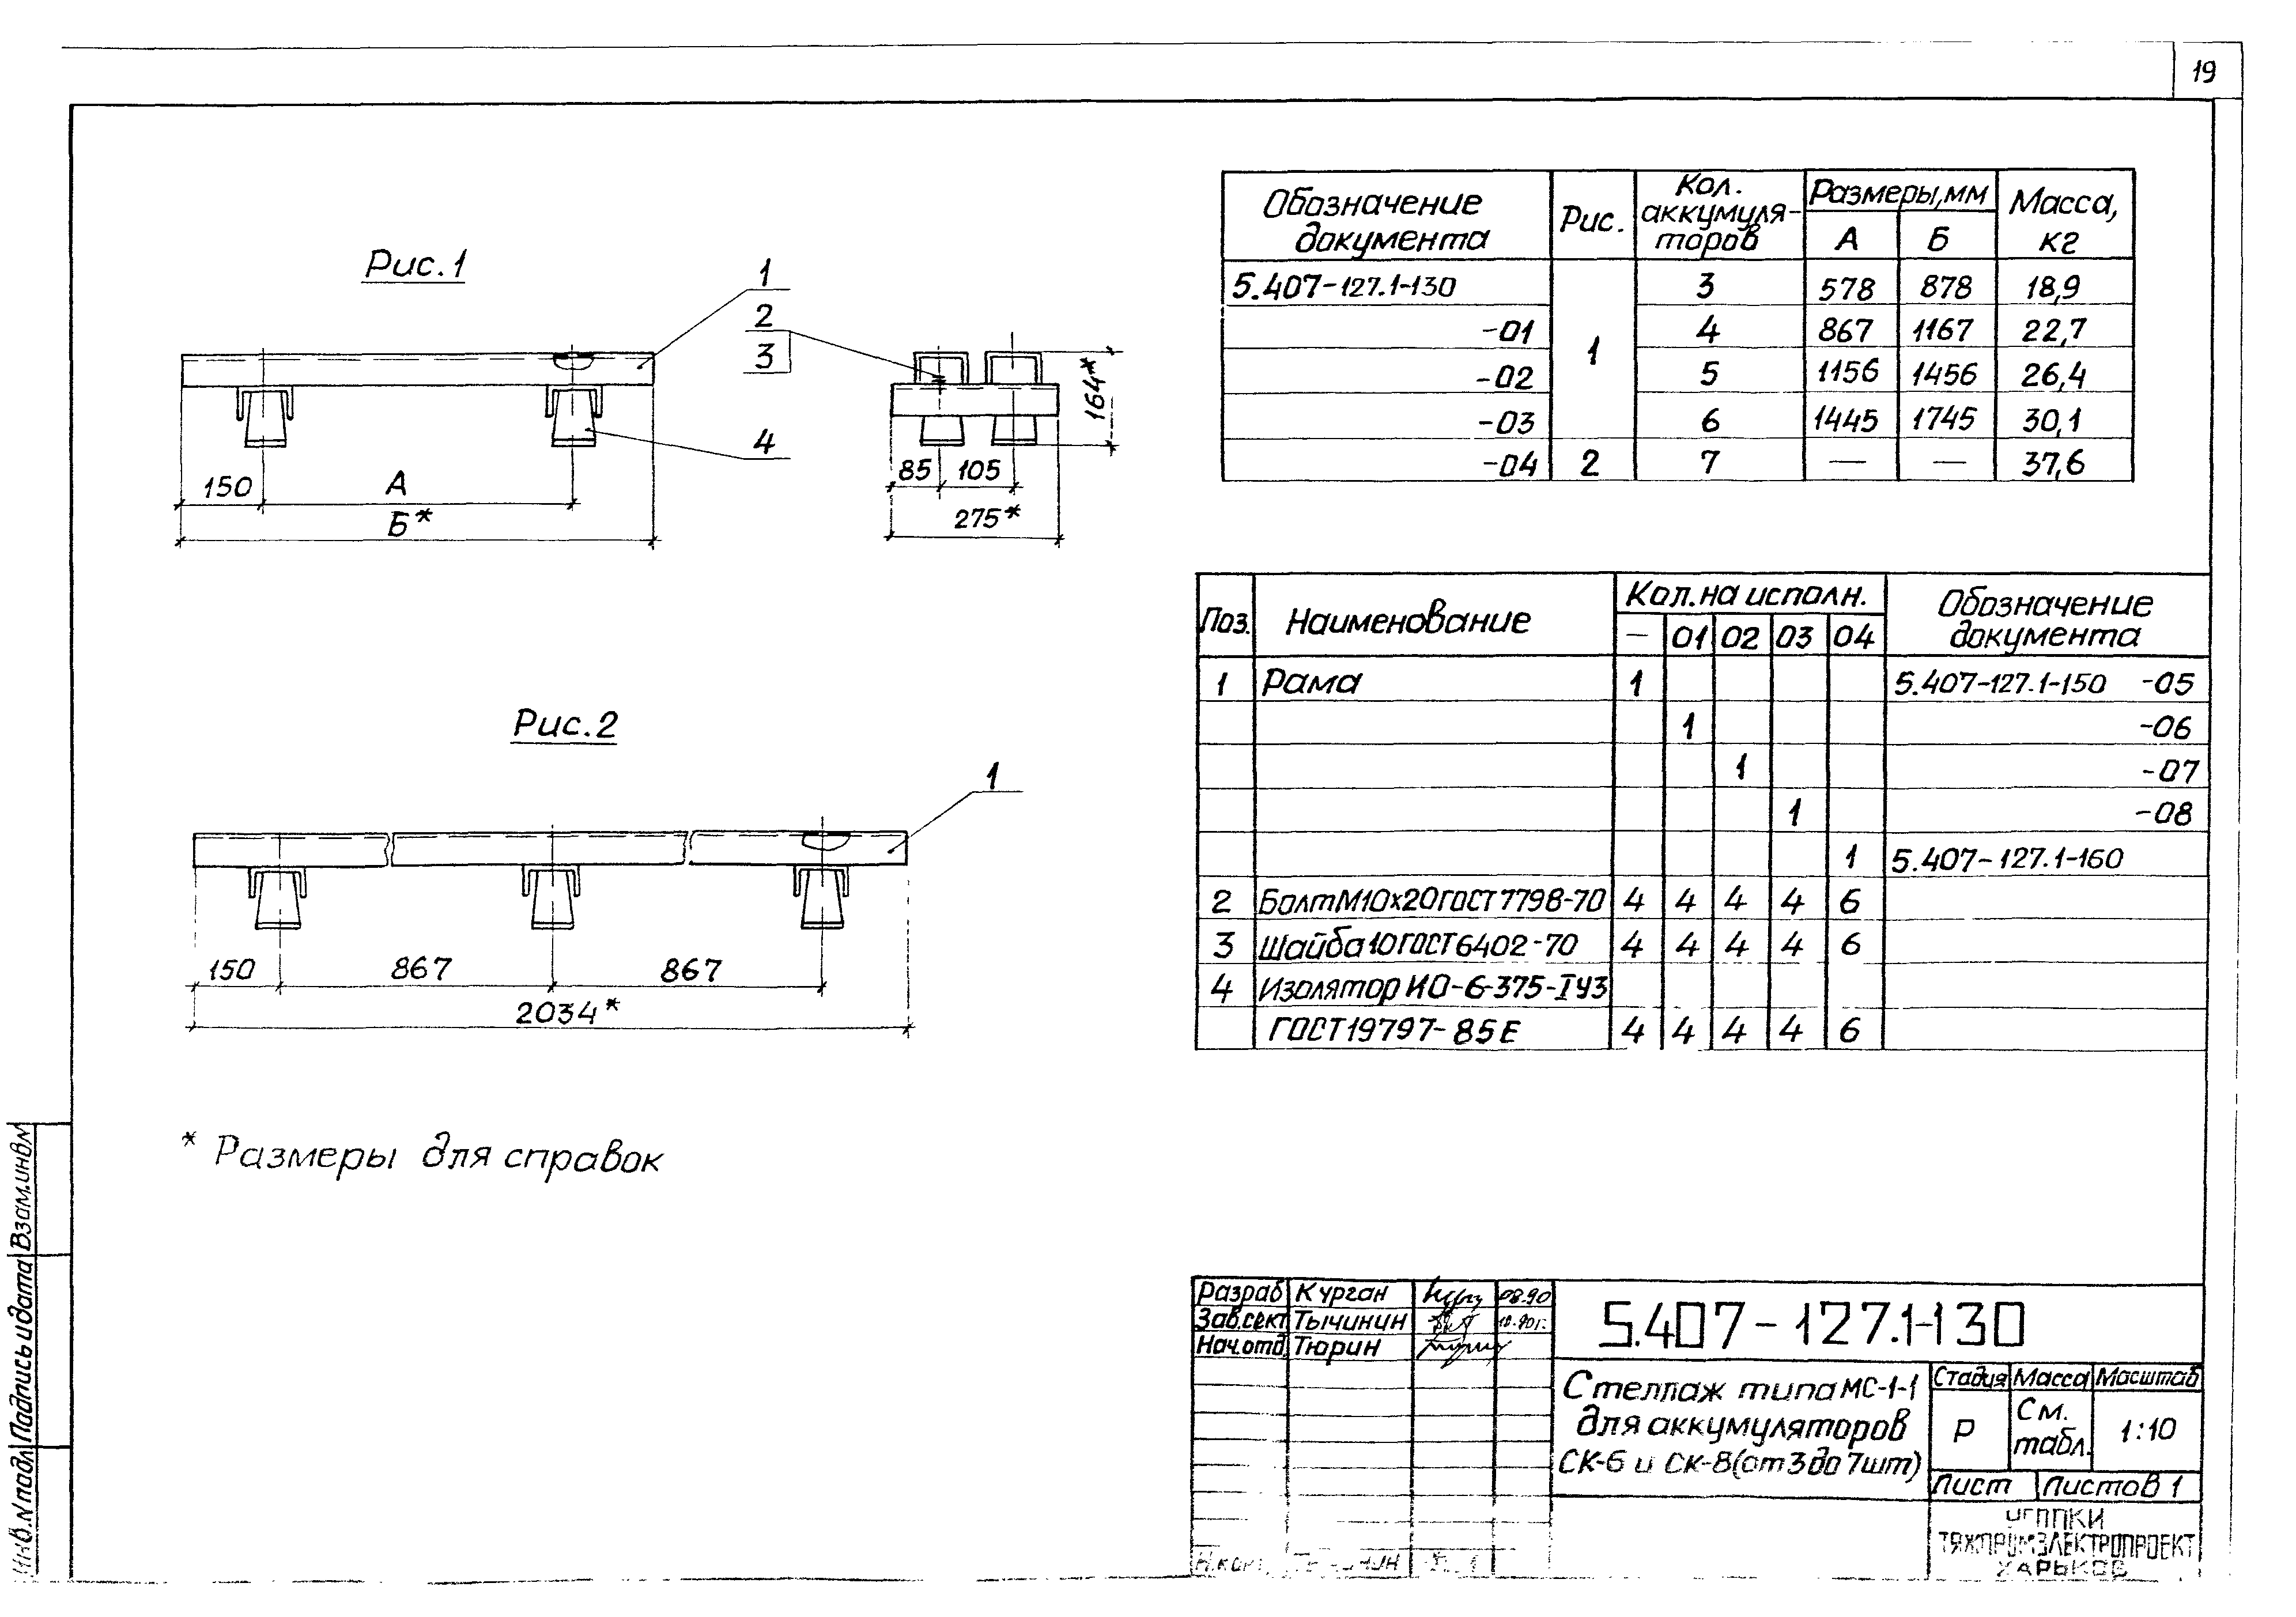 19
Рис.1
1
2
3
4
150
А
Б*
85
105
275*
164*
Обозначение документа | Рис. | Кол. аккумуля-торов | Размеры, мм | Масса, кг
А | Б
5.407-127.1-130 | 1 | 3 | 578 | 878 | 18,9
-01 | 4 | 867 | 1167 | 22,7
-02 | 5 | 1156 | 1456 | 26,4
-03 | 6 | 1445 | 1745 | 30,1
-04 | 2 | 7 | — | — | 37,6
Рис.2
1
150
867
867
2034*
Поз. | Наименование | Кол. на исполн. | Обозначение документа
— | 01 | 02 | 03 | 04
1 | Рама | 1 | 5.407-127.1-150 -05
1 | -06
1 | -07
1 | -08
1 | 5.407-127.1-160
2 | Болт М10х20 ГОСТ 7798-70 | 4 | 4 | 4 | 4 | 6
3 | Шайба 10 ГОСТ 6402-70 | 4 | 4 | 4 | 4 | 6
4 | Изолятор ИО-6-375-IУ3
ГОСТ 19797-85Е | 4 | 4 | 4 | 4 | 6
* Размеры для справок
Взам.инв.№
Подпись и дата
Инв.№ подл
Разраб | Курган | 08.90
Зав.сект | Тычинин | 10.90г.
Нач.отд. | Тюрин
Н.кон
5.407-127.1-130
Стеллаж типа МС-1-1
для аккумуляторов
СК-6 и СК-8 (от 3 до 7шт)
Стадия | Масса | Масштаб
Р | См. табл. | 1:10
Лист | Листов 1
ТЯЖПРОМЭЛЕКТРОПРОЕКТ
ХАРЬКОВ